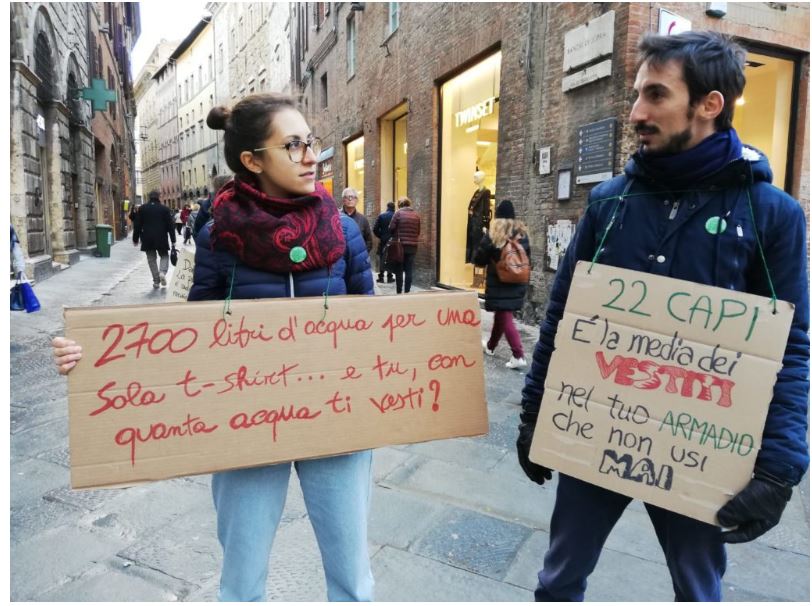 2700 litri d'acqua per una
sola t-shirt... e tu, con
quanta acqua ti vesti?
22 CAPI
É la media dei
VESTITI
nel tuo ARMADIO
che non usi
MAI
TWINSET